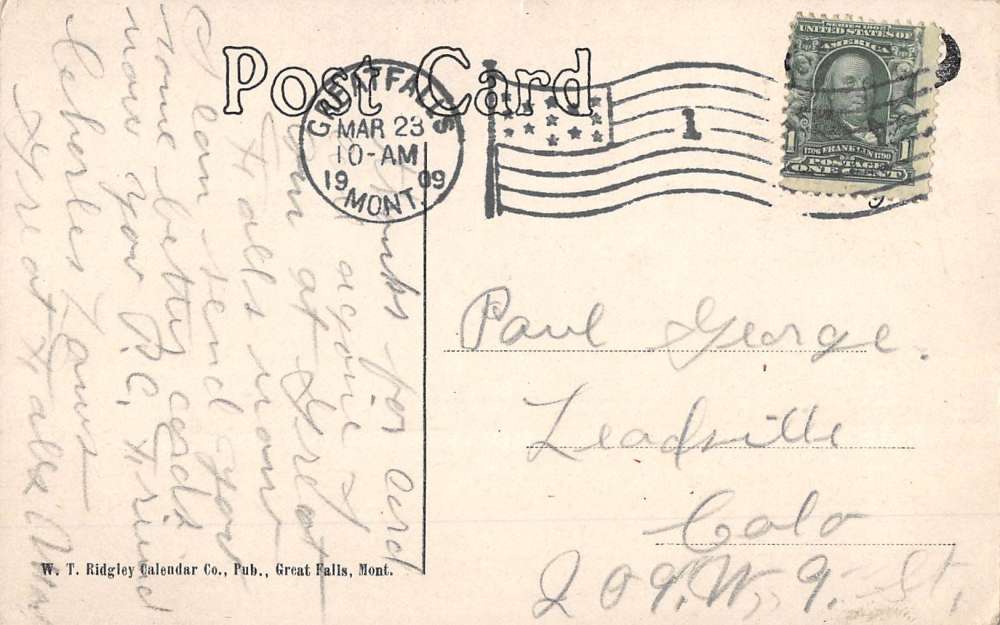 Post Card
GREAT FALLS
MAR 23
10-AM
1909
MONT.
1
SERIES 1902
UNITED STATES OF
AMERICA
1706 FRANKLIN 1790
1 1
POSTAGE
ONE CENT
Thanks for card
again I
am at Great
Falls now
I can send you
some better cards
now your P.C. Friend
Charles
Gr at Falls Mon
Paul George.
Leadville
Colo
209. W. 9. St.
W. T. Ridgley Calendar Co., Pub., Great Falls, Mont.